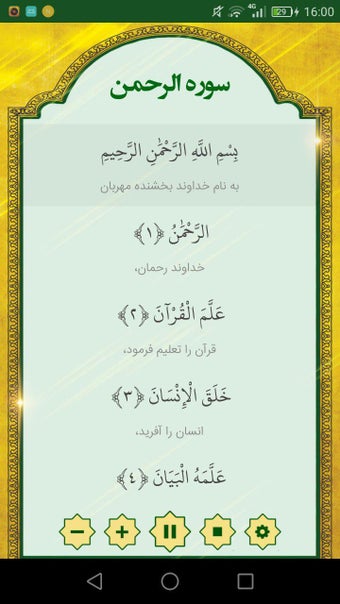 4G 29 16:00
سوره الرحمن
بِسْمِ اللَّهِ الرَّحْمَٰنِ الرَّحِيمِ
به نام خداوند بخشنده مهربان
الرَّحْمَٰنُ ﴿١﴾
خداوند رحمان،
عَلَّمَ الْقُرْآنَ ﴿٢﴾
قرآن را تعلیم فرمود،
خَلَقَ الْإِنْسَانَ ﴿٣﴾
انسان را آفرید،
عَلَّمَهُ الْبَيَانَ ﴿٤﴾